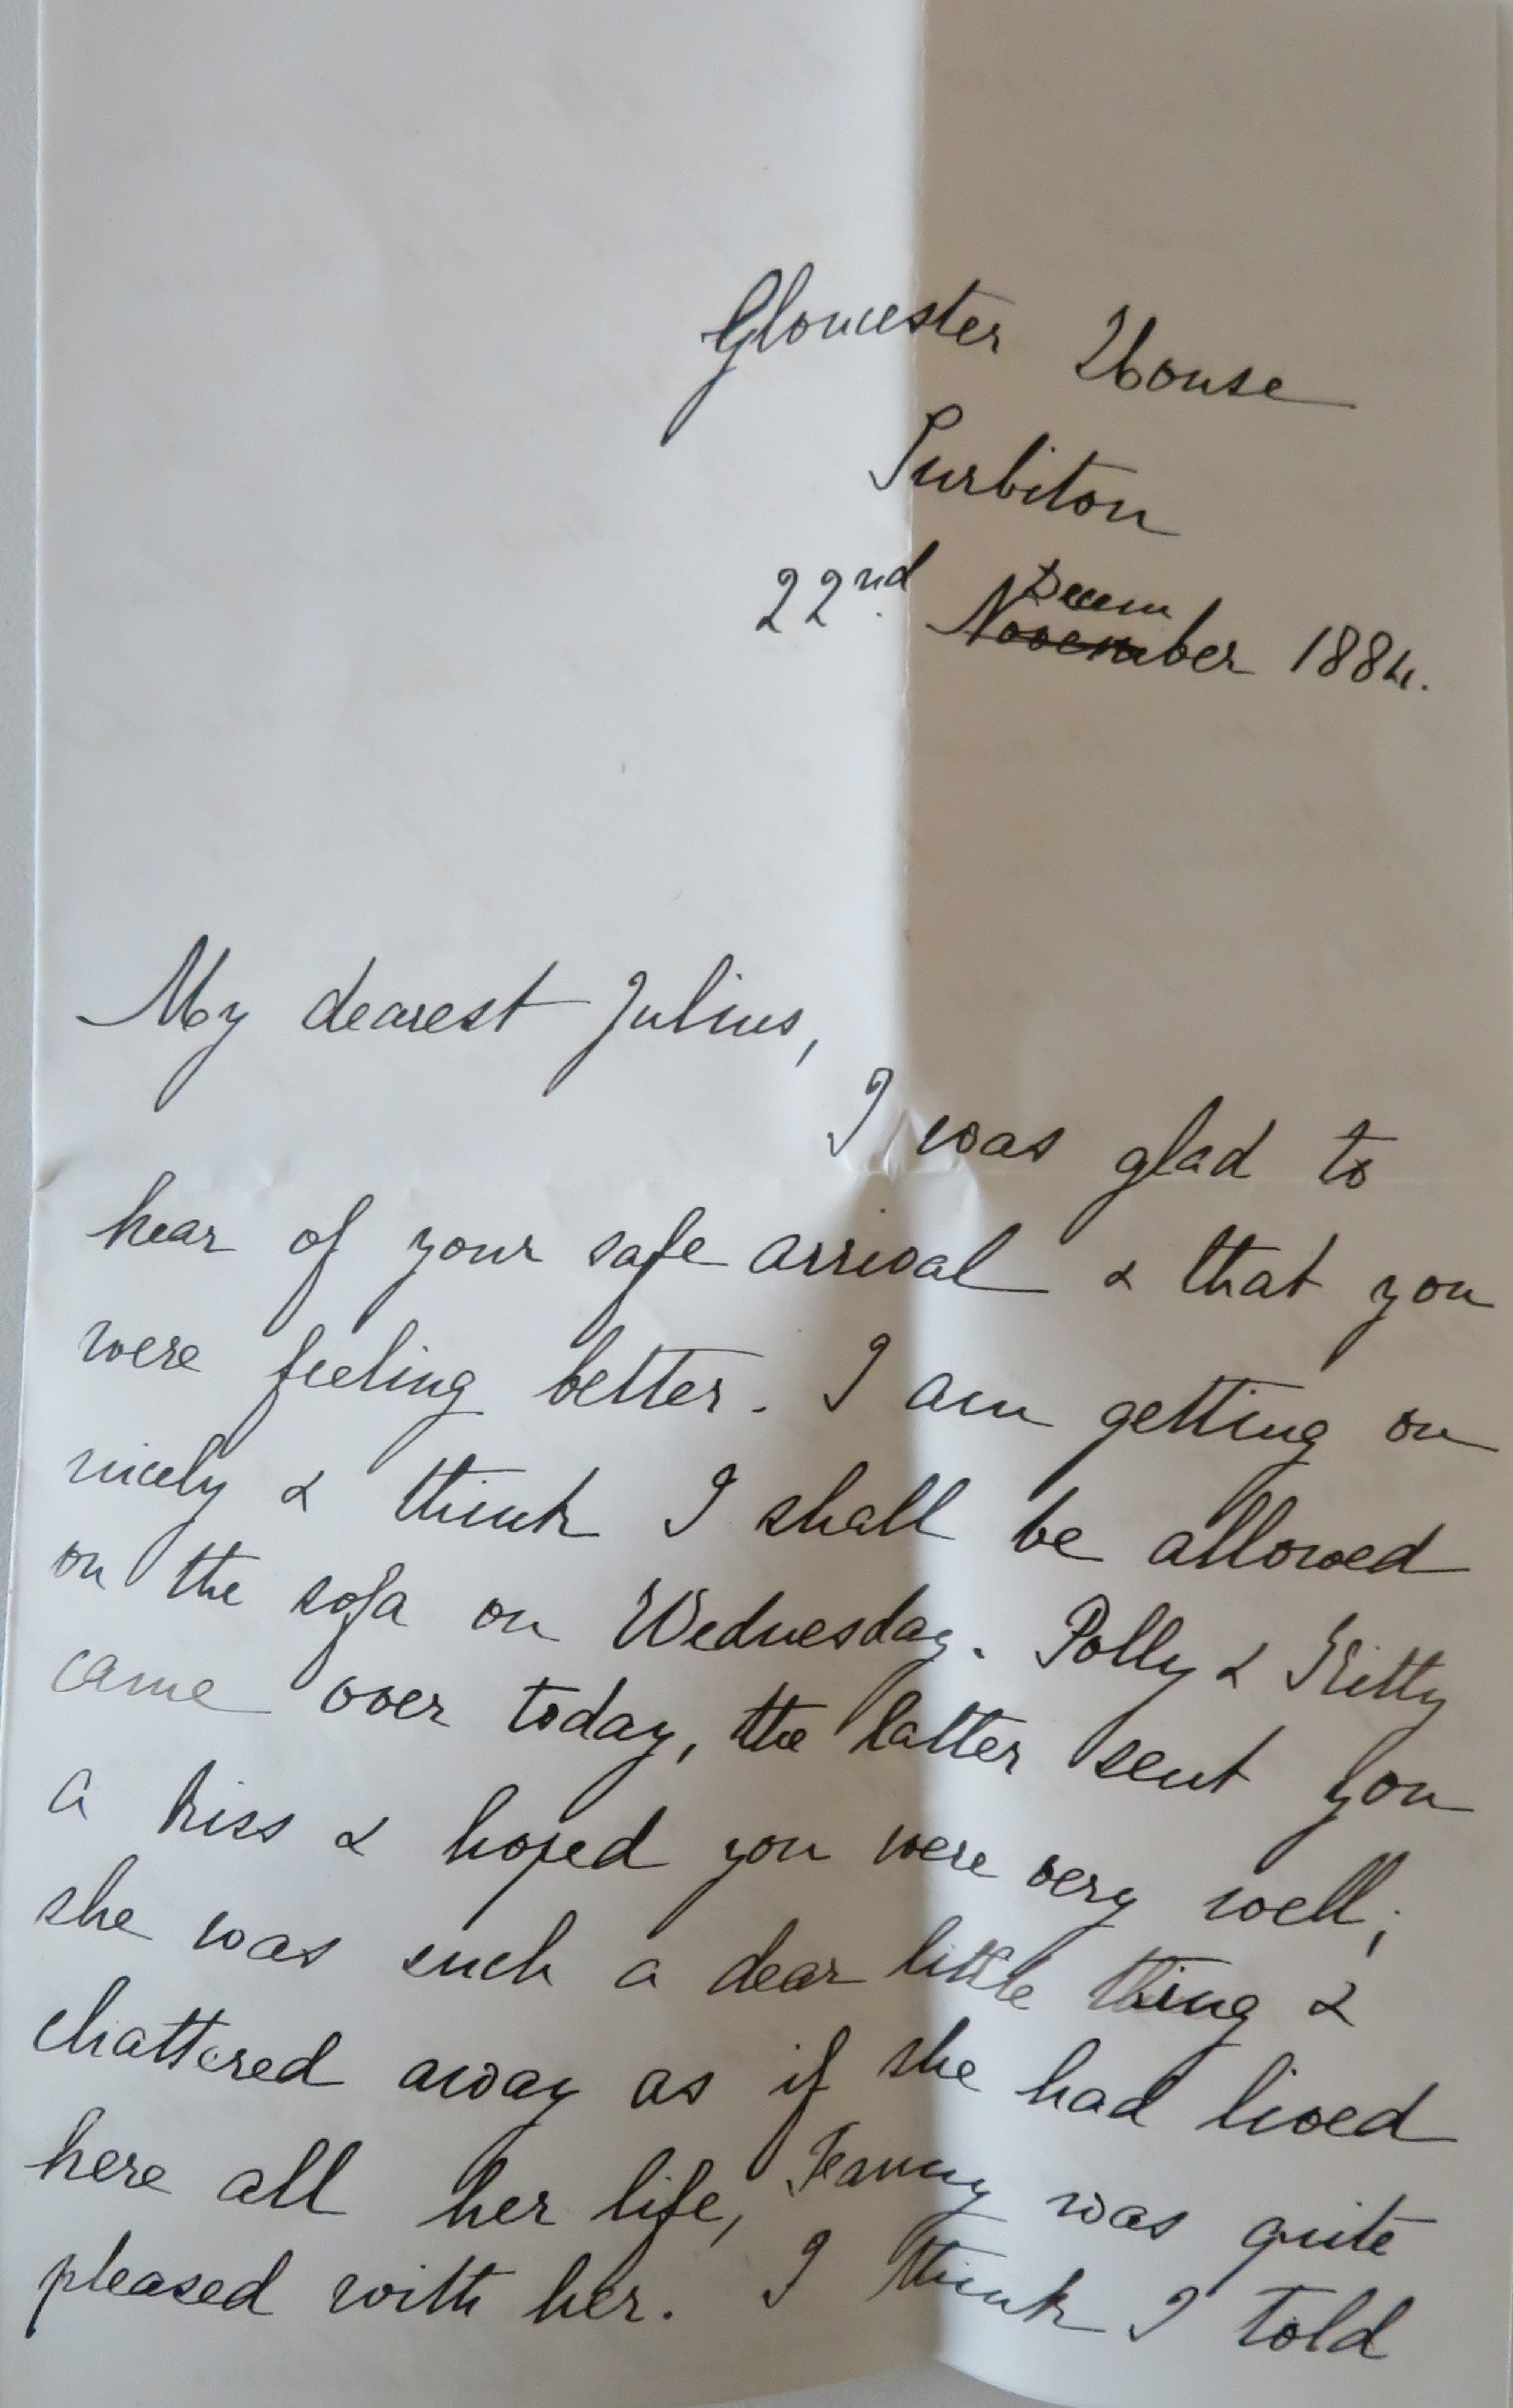 Gloucester House
Surbiton
22nd. Decem
November 1884.
My dearest Julius,
I was glad to
hear of your safe arrival & that you
were feeling better. I am getting on
nicely & think I shall be allowed
on the sofa on Wednesday. Polly & Kitty
came over today, the latter sent you
a kiss & hoped you were very well;
she was such a dear little thing &
chattered away as if she had lived
here all her life, Fanny was quite
pleased with her. I think I told